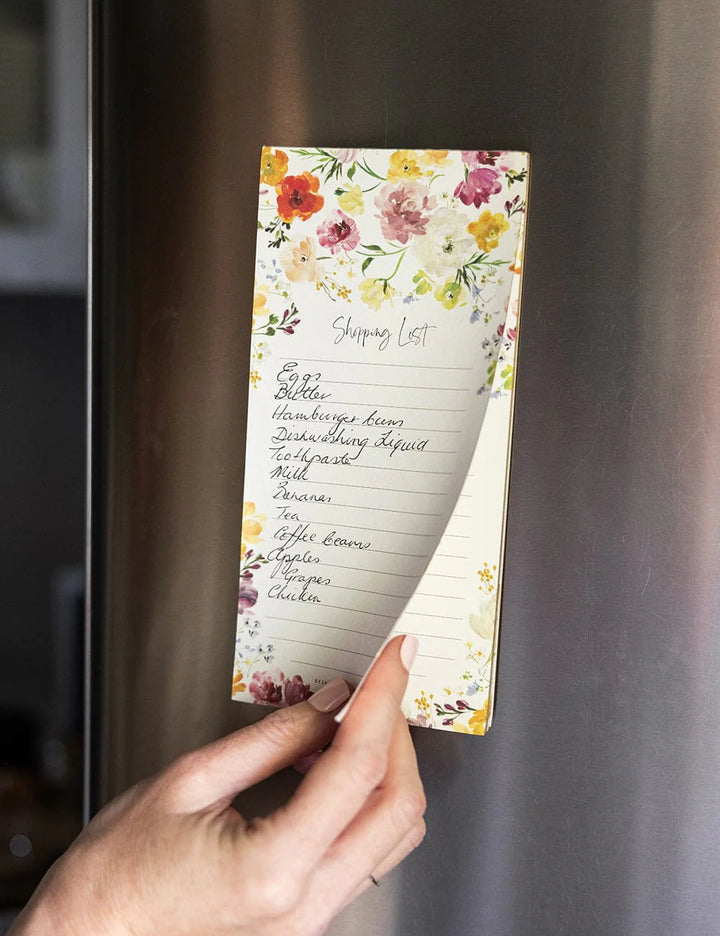 Shopping List
Eggs
Butter
Hamburger buns
Dishwashing Liquid
Toothpaste
Milk
Bananas
Tea
Coffee beans
Apples
Grapes
Chicken